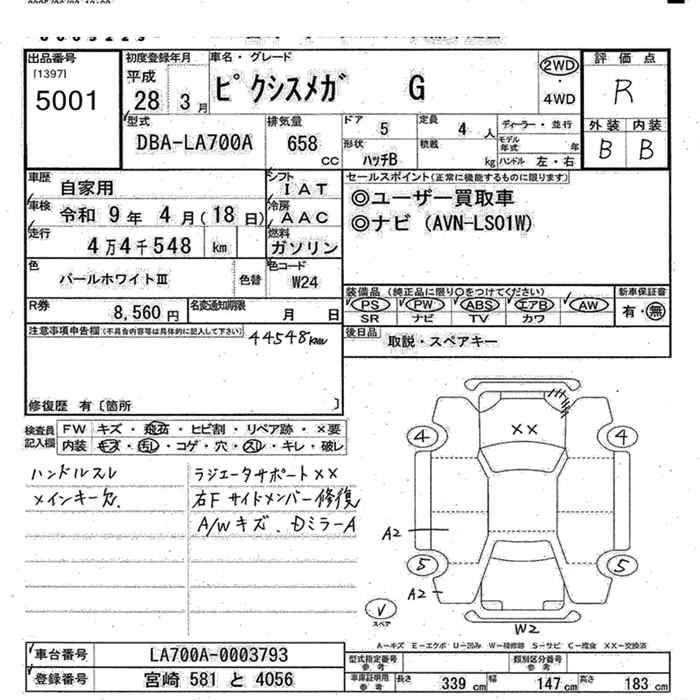 出品番号
[1397]
5001
初度登録年月
平成
28 3月
車名・グレード
ピクシスメガ G
2WD
・
4WD
評価点
R
外装 内装
B B
型式
DBA-LA700A
排気量
658
CC
ドア 5
定員 4 人
形状 ハッチB
積載 kg
ディーラー・並行
モデル年式 年
ハンドル 左・右
車歴 自家用
シフト IAT
車検 令和 9年 4月(18日)
冷房 AAC
走行 4万4千548 km
燃料 ガソリン
色 パールホワイトⅢ 色替
色コード W24
R券 8,560円
名変通知期限 月 日
セールスポイント(正常に機能するものに限ります)
◎ユーザー買取車
◎ナビ (AVN-LS01W)
装備品 (純正品に限り○をつけてください)
PS PW ABS エアB AW
SR ナビ TV カワ
新車保証書
有・無
後日品 取説・スペアキー
注意事項申告欄(不具合内容等は具体的に記入して下さい)
44548km
修復歴 有〔箇所 〕
検査員記入欄
FW キズ・飛石・ヒビ割・リペア跡・×要
内装 キズ・汚レ・コゲ・穴・スレ・キレ・破レ
ハンドルスレ
メインキー欠
ラジエータサポート××
右Fサイドメンバー修復
A/Wキズ、DミラーA
××
4 4
A2
5 5
A2
スペア
W2
A－キズ E－エクボ U－凹み W－補修跡 S－サビ C－腐食 XX－交換済
車台番号 LA700A-0003793
登録番号 宮崎 581 と 4056
型式指定番号 参考
類別区分番号 参考
車庫証明用 参考
長さ 339 cm 幅 147 cm 高さ 183 cm